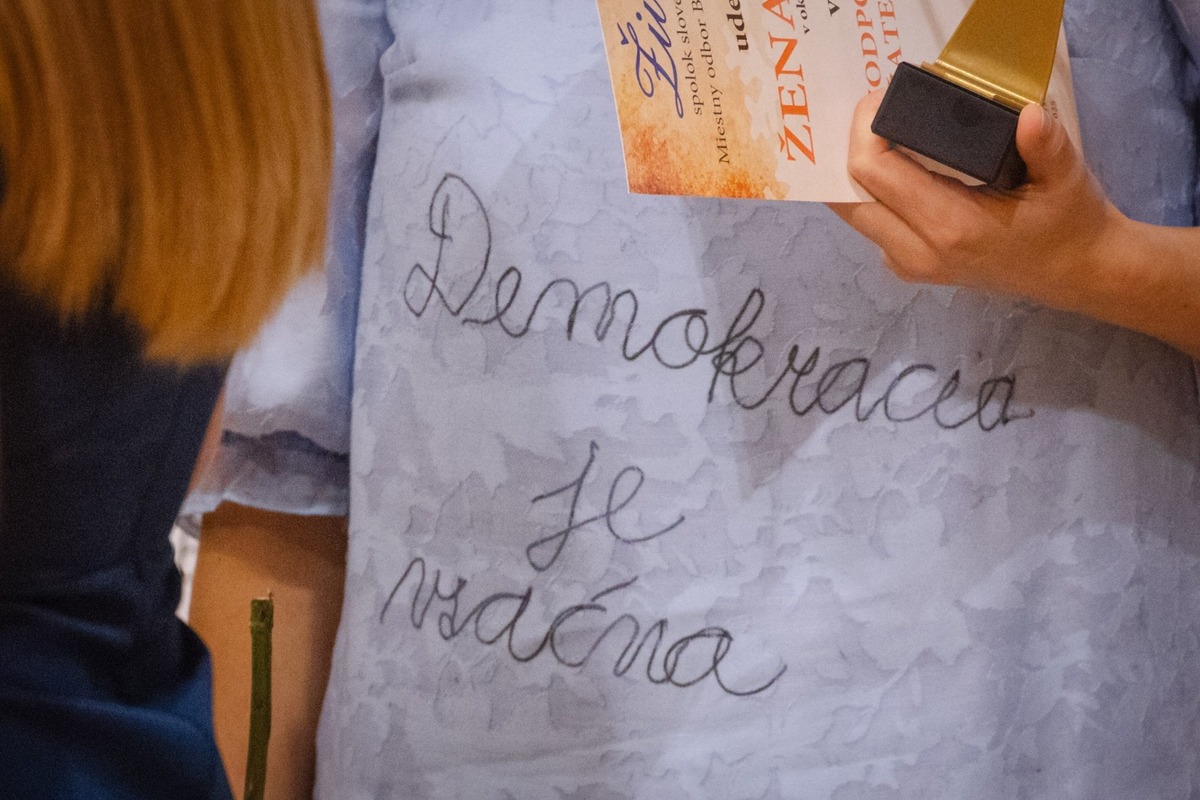 Živ
spolok slove
Miestny odbor B
ude
ŽENA
v ok
V
ODPO
ATE
Demokracia
je
vzácna